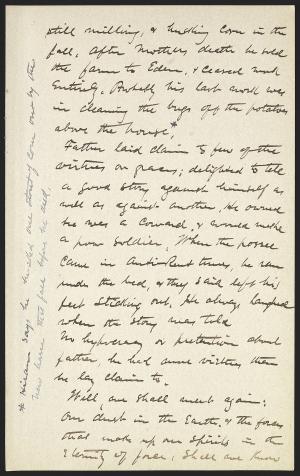 still milking, & husking corn in the
fall. After Mothers death he sold
the farm to Eden, & ceased work
entirely. Probably his last work was
in cleaning the bugs off the potatoes
above the house.*
Father laid claim to few of the
virtues or graces; delighted to tell
a good story against himself as
well as against another. He owned
he was a coward, & would make
a poor soldier. When the posse
came in Anti-Rent times, he ran
under the bed, & they said left his
feet sticking out. He always laughed
when the story was told
No hypocrisy or pretention about
father, he had more virtues than
he lay claim to.
Will we shall meet again:
Our dust in the Earth, & the forces
that make up our spirits in the
Eternity of force, Shall we know
* Hiram says he husked one stout of corn out by the
new barn that fall before he died.